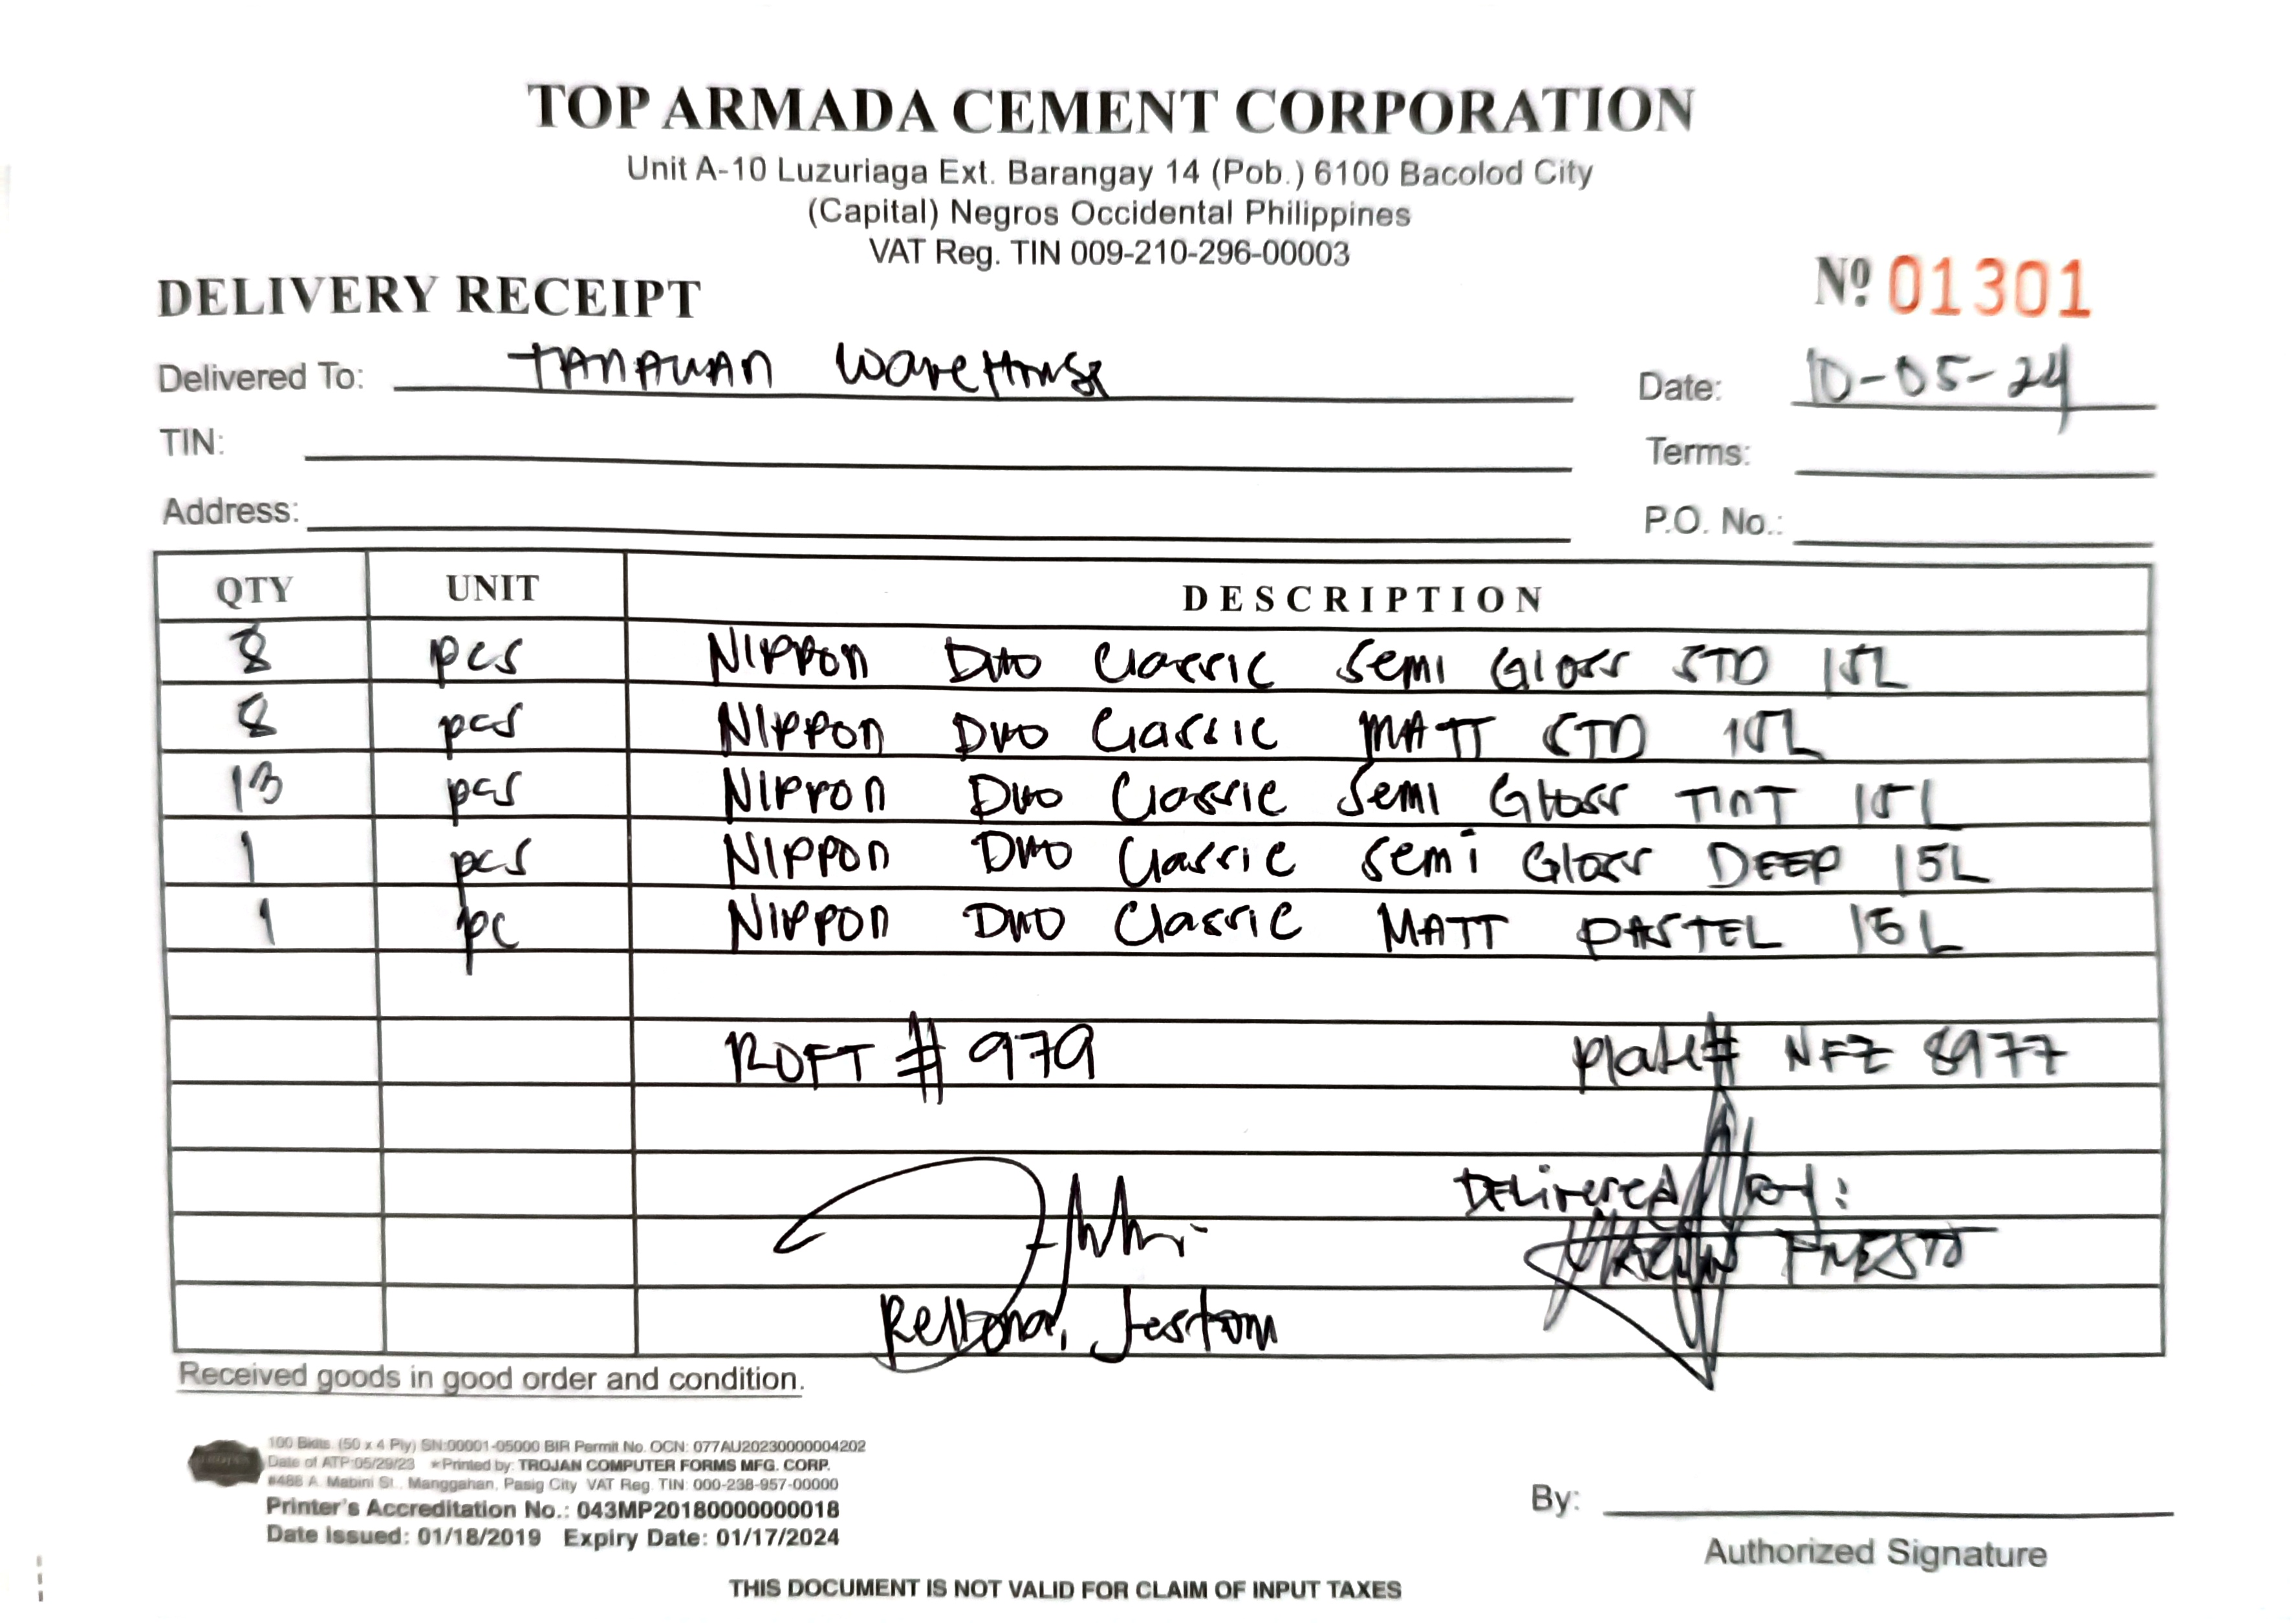 TOP ARMADA CEMENT CORPORATION
Unit A-10 Luzuriaga Ext. Barangay 14 (Pob.) 6100 Bacolod City
(Capital) Negros Occidental Philippines
VAT Reg. TIN 009-210-296-00003
DELIVERY RECEIPT Nº 01301
Delivered To: TANAUAN WareHouse Date: 10-05-24
TIN: Terms:
Address: P.O. No.:
QTY UNIT DESCRIPTION
8 pcs NIPPON Duo Classic Semi Gloss STD 15L
8 pcs NIPPON Duo Classic MATT STD 15L
13 pcs NIPPON Duo Classic Semi Gloss TINT 15L
1 pcs NIPPON Duo Classic Semi Gloss DEEP 15L
1 pc NIPPON DUO Classic MATT PASTEL 15L
ROFT # 979 plate# NFZ 8977
Delivered by:
Jestom
Received goods in good order and condition.
100 Bklts. (50 x 4 Ply) SN:00001-05000 BIR Permit No. OCN: 077AU20230000004202
Date of ATP:05/29/23 *Printed by: TROJAN COMPUTER FORMS MFG. CORP.
#488 A. Mabini St., Manggahan, Pasig City VAT Reg. TIN: 000-238-957-00000
Printer's Accreditation No.: 043MP20180000000018
Date issued: 01/18/2019 Expiry Date: 01/17/2024
By:
Authorized Signature
THIS DOCUMENT IS NOT VALID FOR CLAIM OF INPUT TAXES